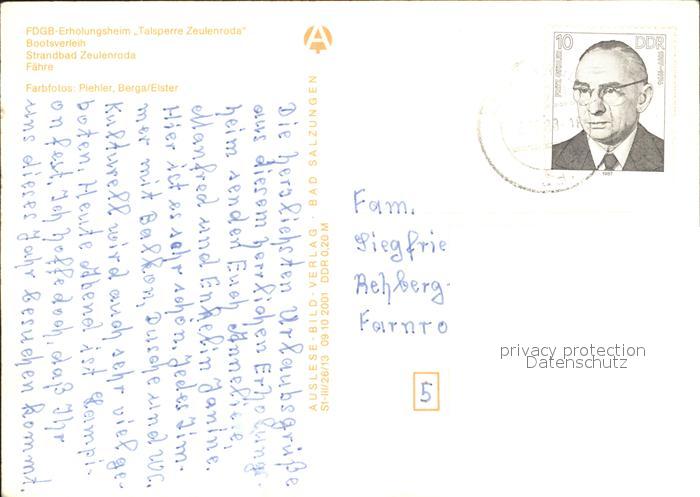 FDGB-Erholungsheim „Talsperre Zeulenroda"
Bootsverleih
Strandbad Zeulenroda
Fähre
Farbfotos: Piehler, Berga/Elster
Die herzlichsten Urlaubsgrüße
aus diesem herrlichen Erholungs-
heim senden Euch Anneliese,
Manfred und Enkelin Janine.
Hier ist es sehr schön. Jedes Zim-
mer mit Balkon, Dusche und WC.
Kulturell wird auch sehr viel ge-
boten. Heute Abend ist Lampi-
onfest. Ich hoffe doch, daß Ihr
uns dieses Jahr besuchen kommt.
AUSLESE-BILD-VERLAG · BAD SALZUNGEN
S1-III/26/13 09 10 2001 DDR 0,20 M
10 DDR
1987
Fam.
Siegfrie
Rehberg
Farnro
5
privacy protection
Datenschutz